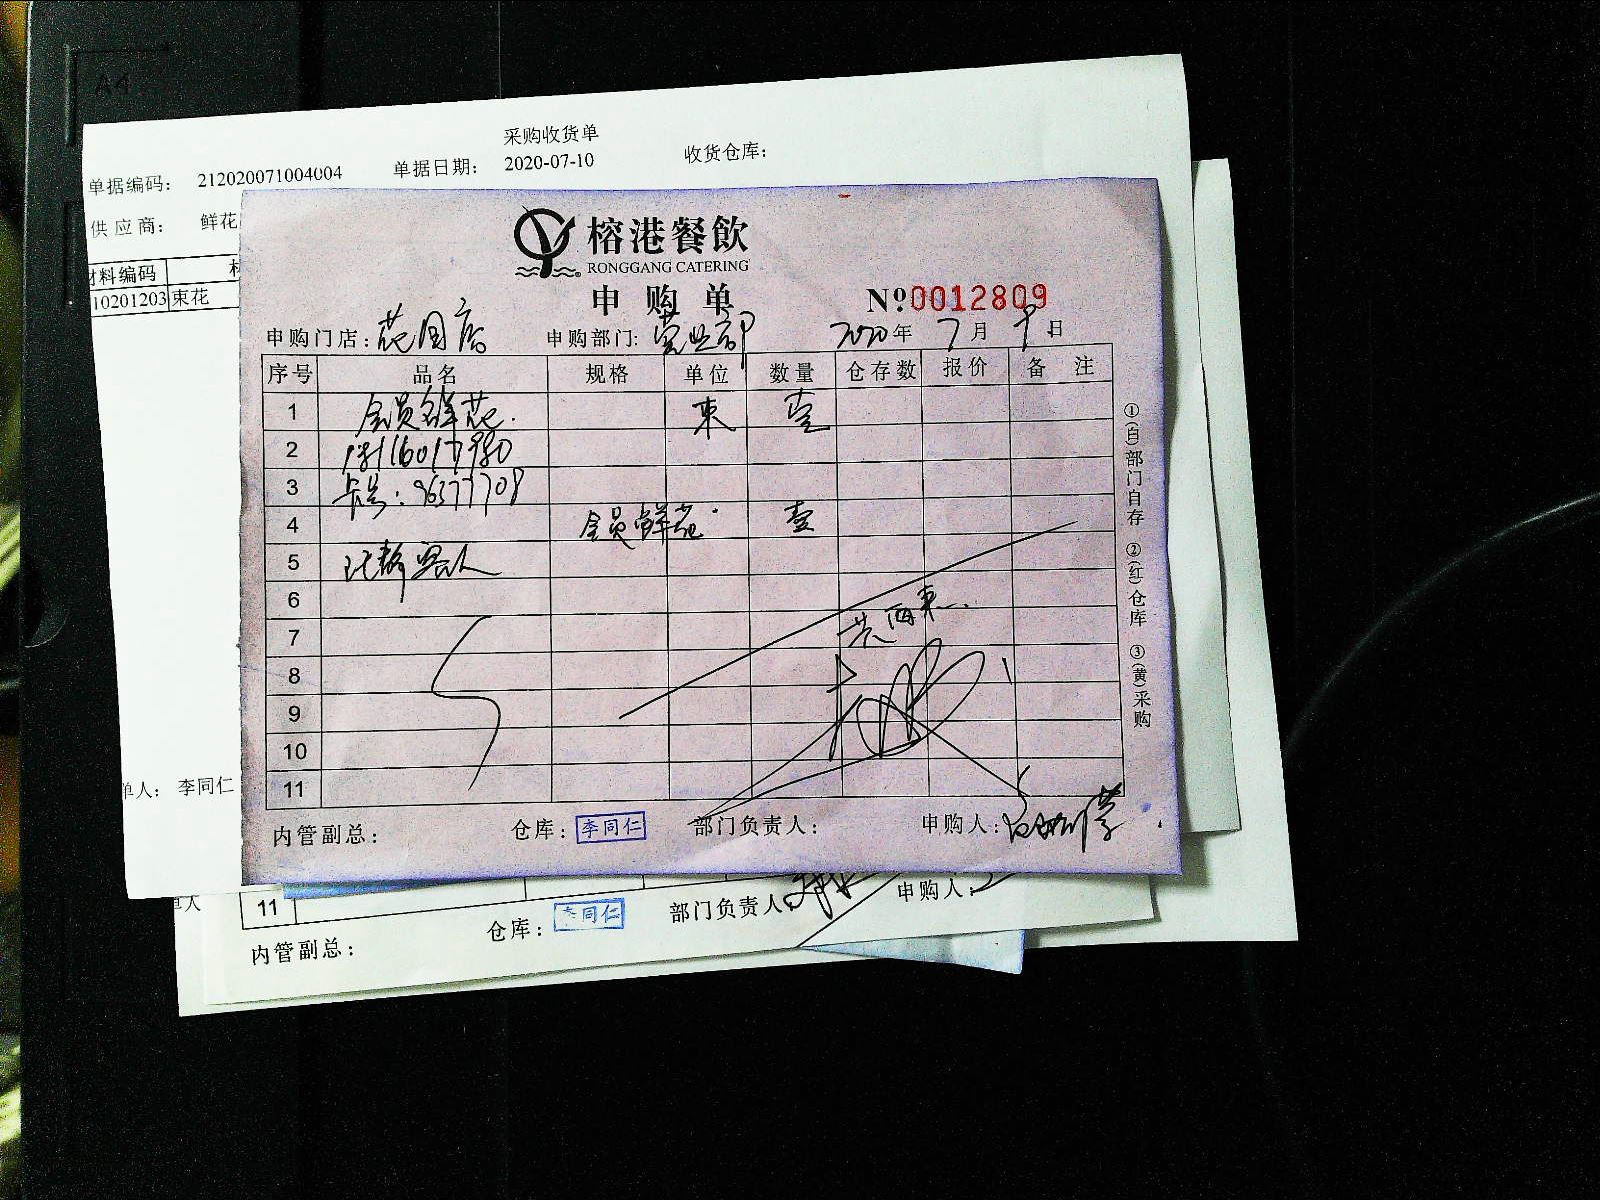 A4
采购收货单
单据编码： 212020071004004 单据日期： 2020-07-10 收货仓库：
供应商： 鲜花
材料编码 材
10201203 束花
榕港餐飲
RONGGANG CATERING
申购单 №0012809
申购门店：花园店 申购部门：营业部 2020年7月9日
序号 品名 规格 单位 数量 仓存数 报价 备注
1 会员鲜花. 束 壹
2
3 卡号：96377708
4 会员鲜花. 壹
5 客人
6
共两束.
7
8
9
10
11
①(白)部门自存 ②(红)仓库 ③(黄)采购
单人： 李同仁
内管副总： 仓库：李同仁 部门负责人： 申购人：
单人 11
内管副总： 仓库：李同仁 部门负责人 申购人：